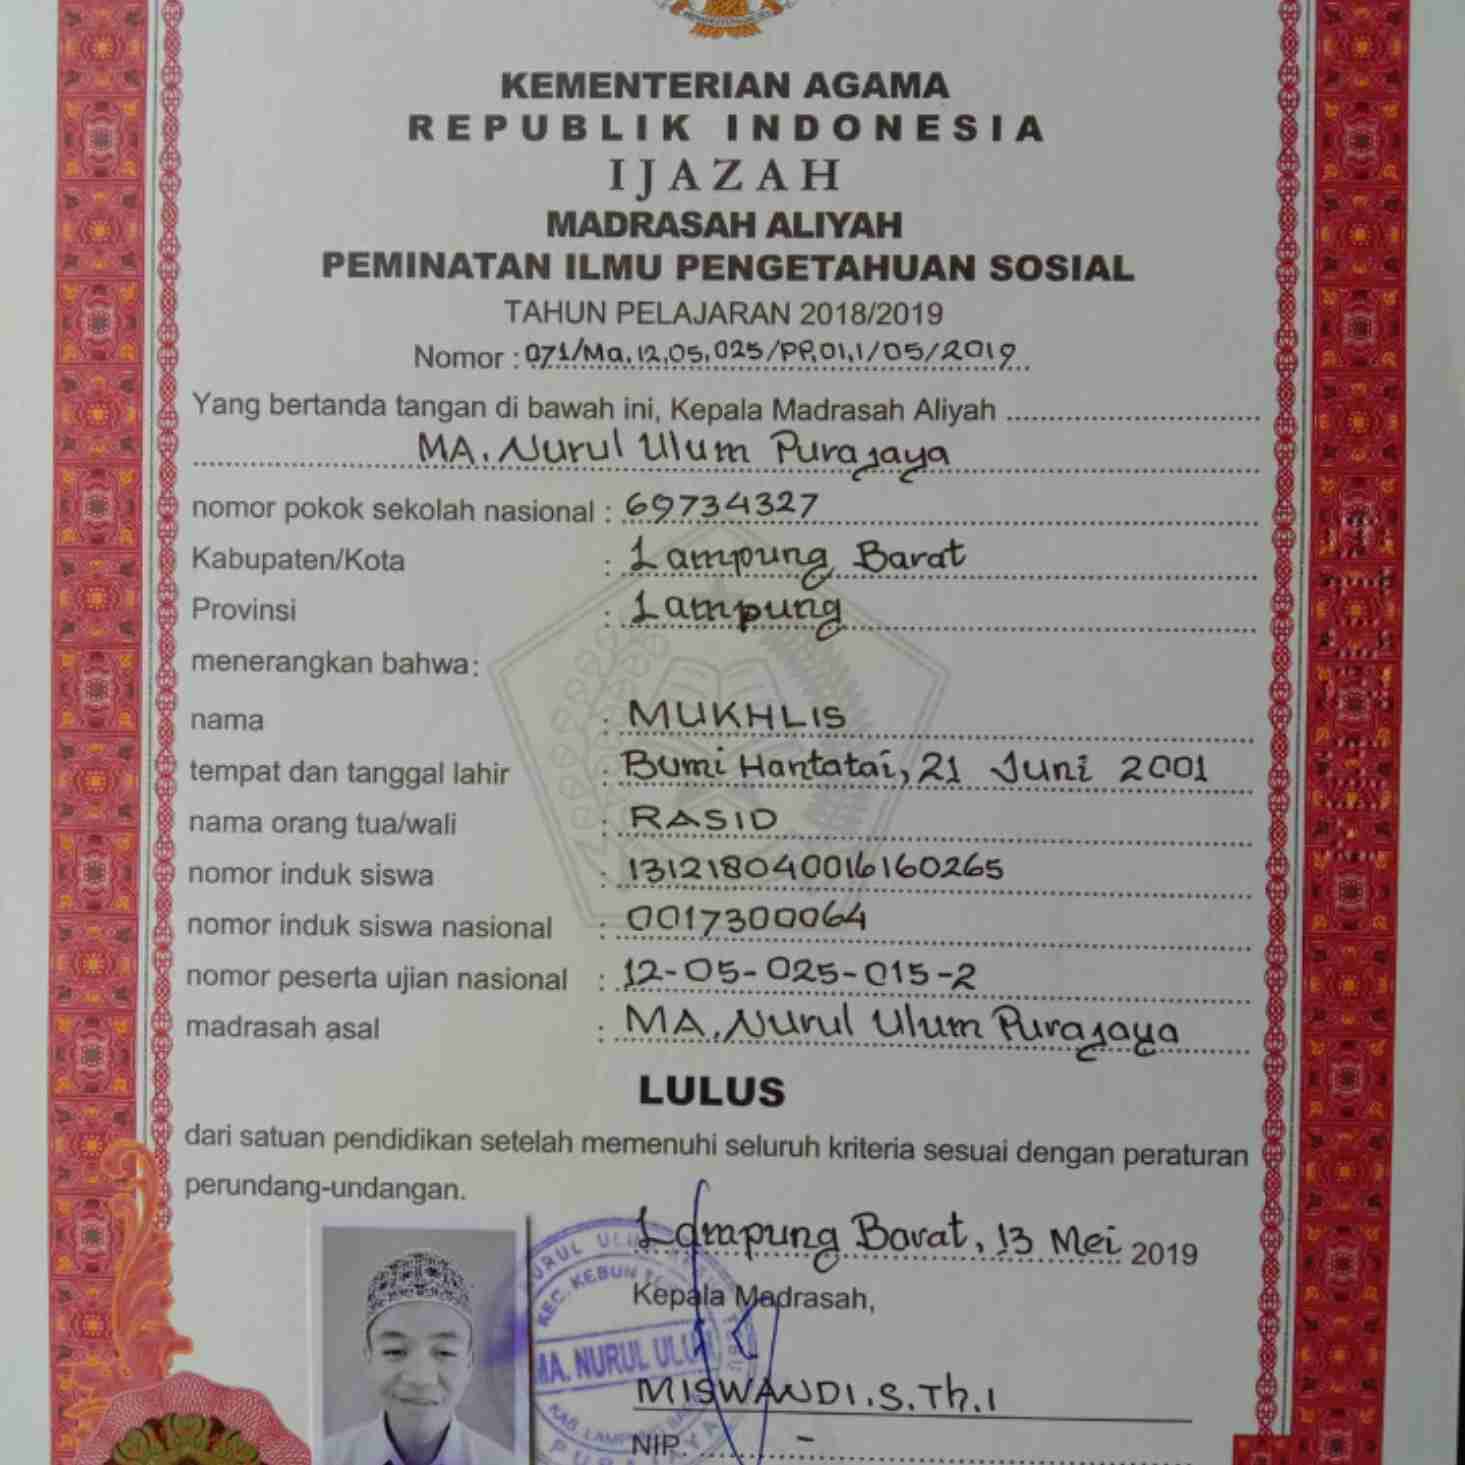 KEMENTERIAN AGAMA
REPUBLIK INDONESIA
IJAZAH
MADRASAH ALIYAH
PEMINATAN ILMU PENGETAHUAN SOSIAL
TAHUN PELAJARAN 2018/2019
Nomor : 071/Ma.12.05.025/PP.01.1/05/2019
Yang bertanda tangan di bawah ini, Kepala Madrasah Aliyah
MA. Nurul Ulum Purajaya
nomor pokok sekolah nasional : 69734327
Kabupaten/Kota : Lampung Barat
Provinsi : Lampung
menerangkan bahwa:
nama : MUKHLIS
tempat dan tanggal lahir : Bumi Hantatai, 21 Juni 2001
nama orang tua/wali : RASID
nomor induk siswa : 131218040016160265
nomor induk siswa nasional : 0017300064
nomor peserta ujian nasional : 12-05-025-015-2
madrasah asal : MA. Nurul Ulum Purajaya
LULUS
dari satuan pendidikan setelah memenuhi seluruh kriteria sesuai dengan peraturan
perundang-undangan.
Lampung Barat, 13 Mei 2019
Kepala Madrasah,
MA. NURUL ULUM
MISWANDI.S.Th.I
NIP. -